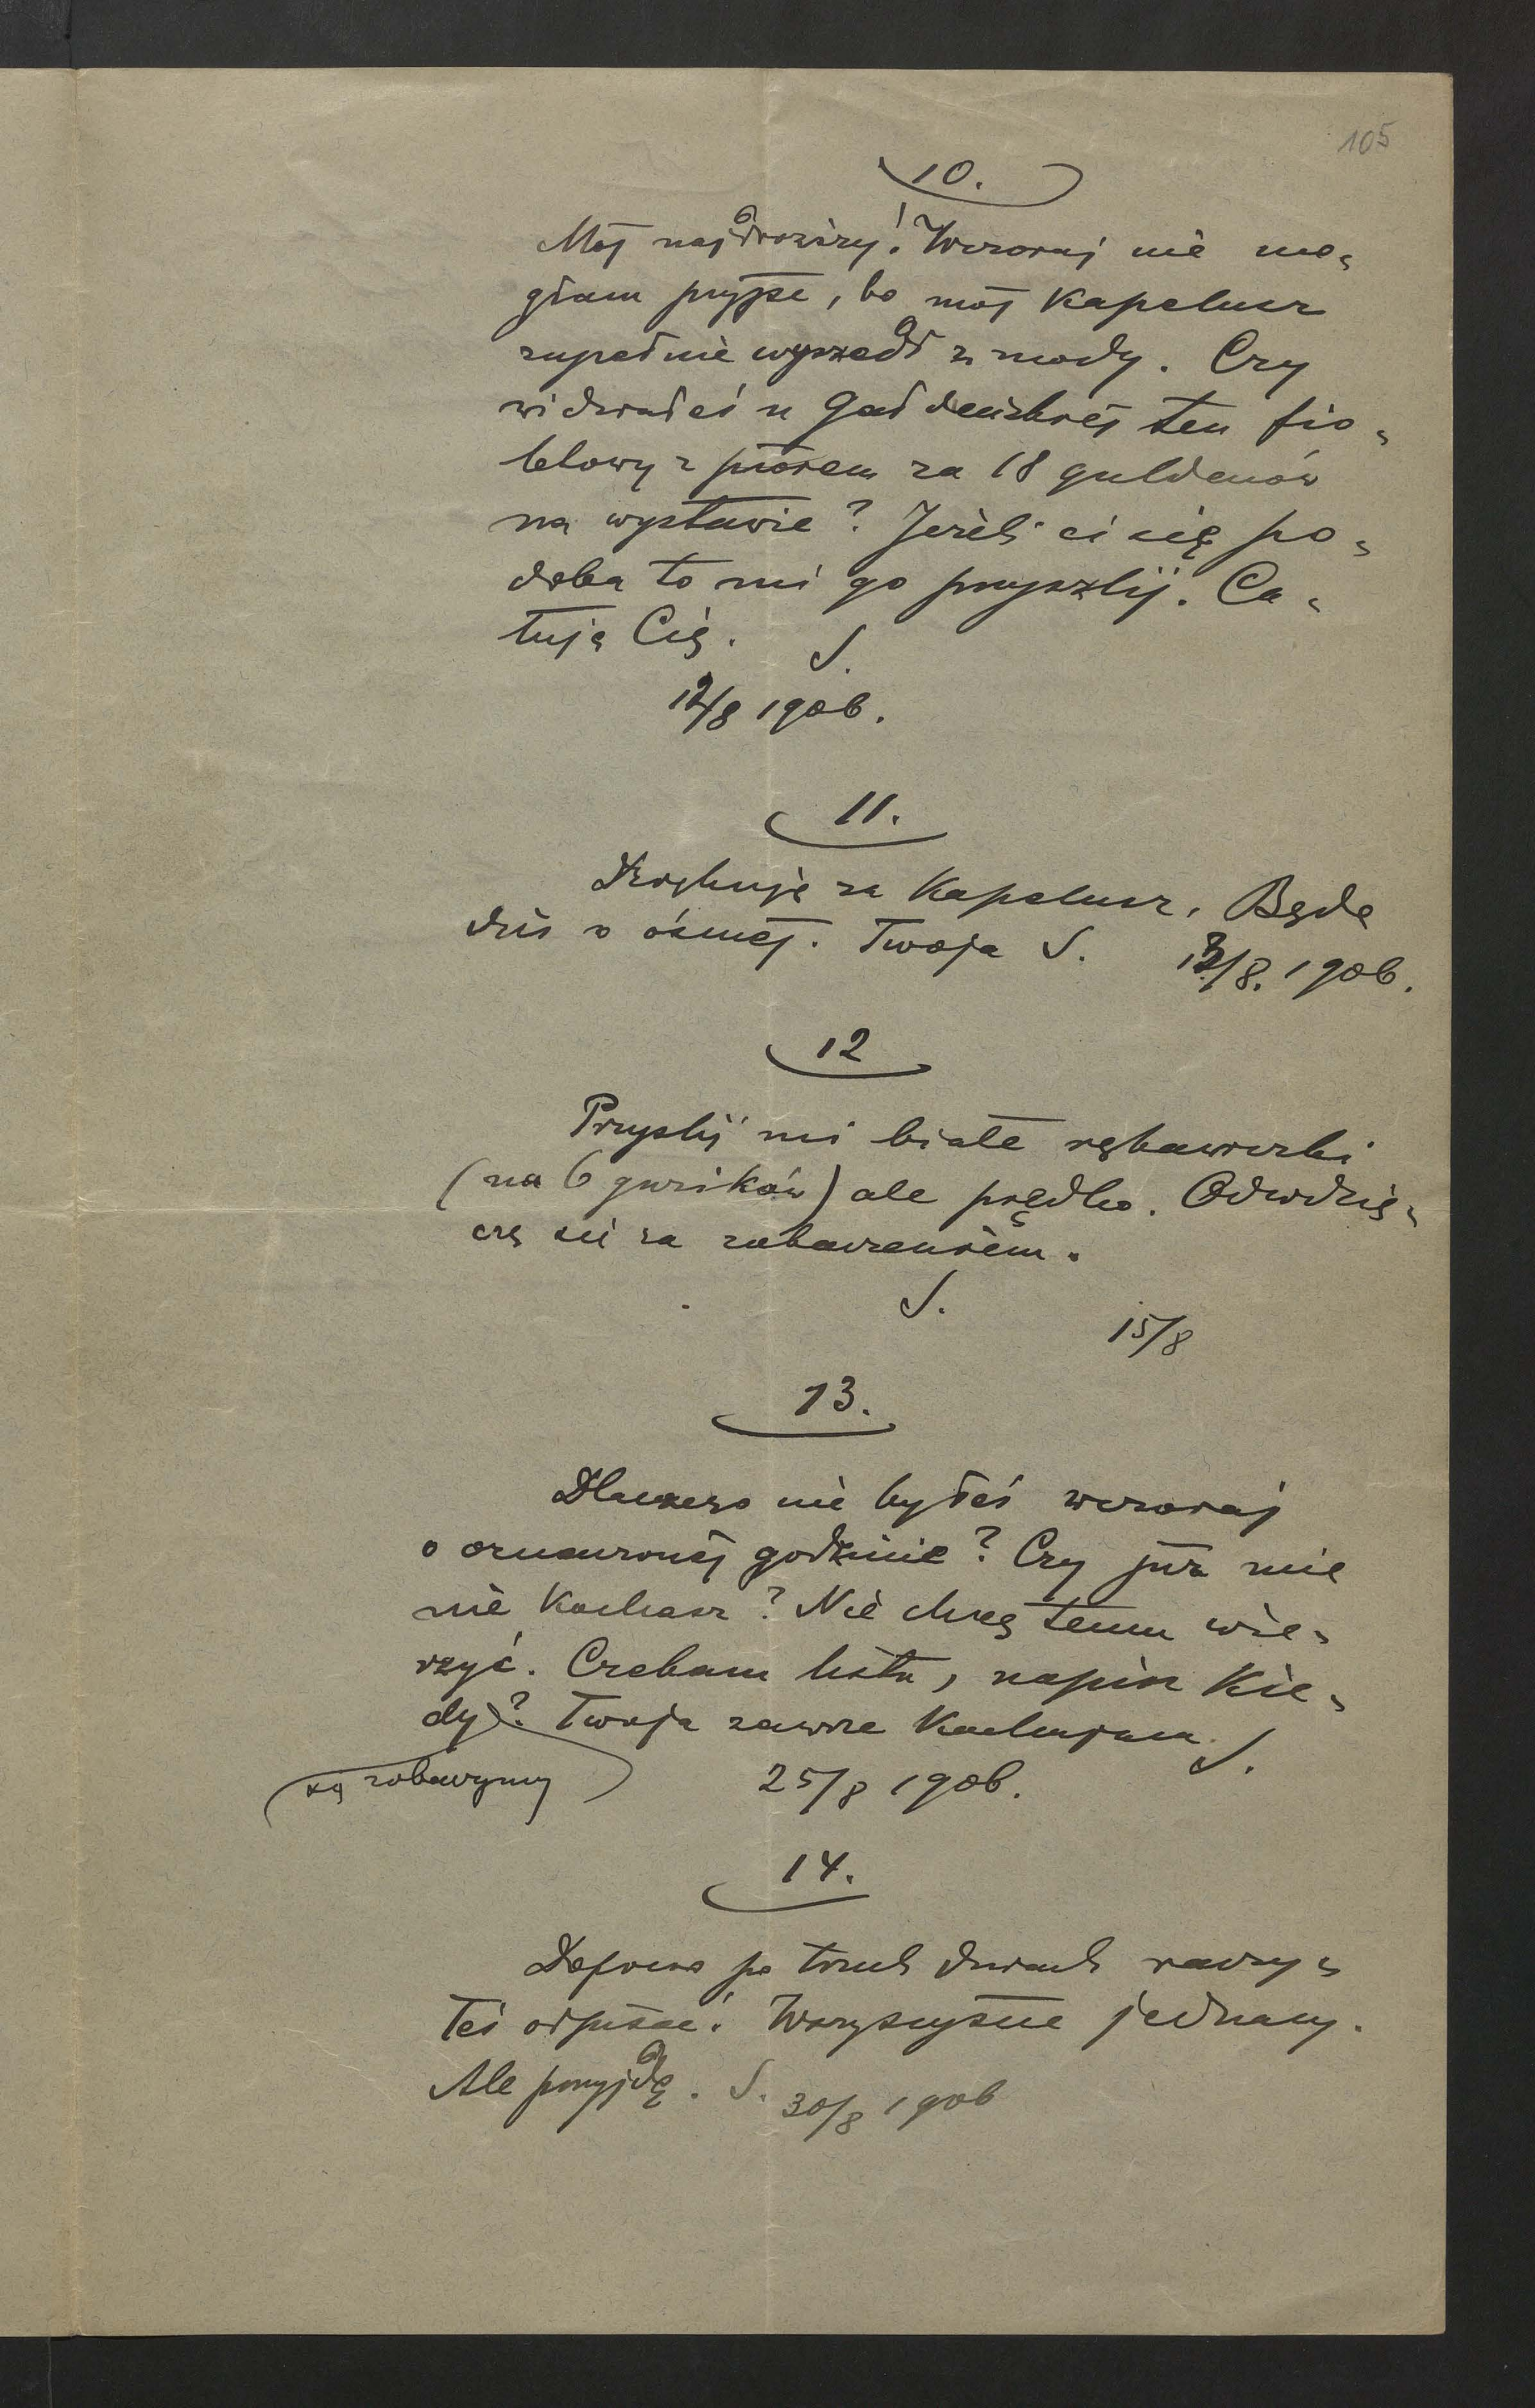 105
10.
Mój najdroższy! Wczoraj nie mo-
głam przyjść, bo mój kapelusz
zupełnie wyszedł z mody. Czy
widziałeś u Gałdeńskiej ten fio-
letowy z piórem za 18 guldenów
na wystawie? Jeżeli ci się po-
doba to mi go przyszlij. Ca-
łuję Cię. S.
12/8 1906.
11.
Dziękuję za kapelusz. Będę
dziś o ósmej. Twoja S. 13/8. 1906.
12
Przyslij mi białe rękawiczki
(na 6 guzików) ale prędko. Odwdzię-
czę się za zobaczeniem.
S.
15/8
13.
Dlaczego nie byłeś wczoraj
o oznaczonej godzinie? Czy już mie
nie kochasz? Nie chcę temu wie-
rzyć. Czekam listu, napisz kie-
dy? Twoja zawsze kochająca S.
się zobaczymy
25/8 1906.
14.
Dopiero po trzech dniach raczy-
łeś odpisać. Wszyscyście jednacy.
Ale przyjdę. S. 30/8 1906